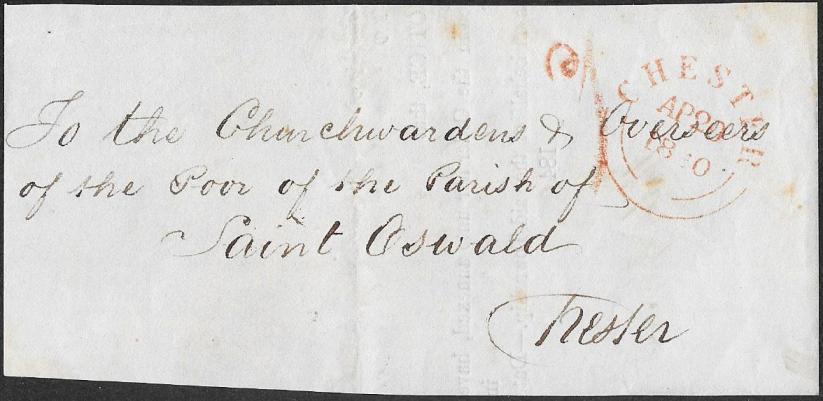 To the Churchwardens & Overseers
of the Poor of the Parish of
Saint Oswald
Chester
CHESTER